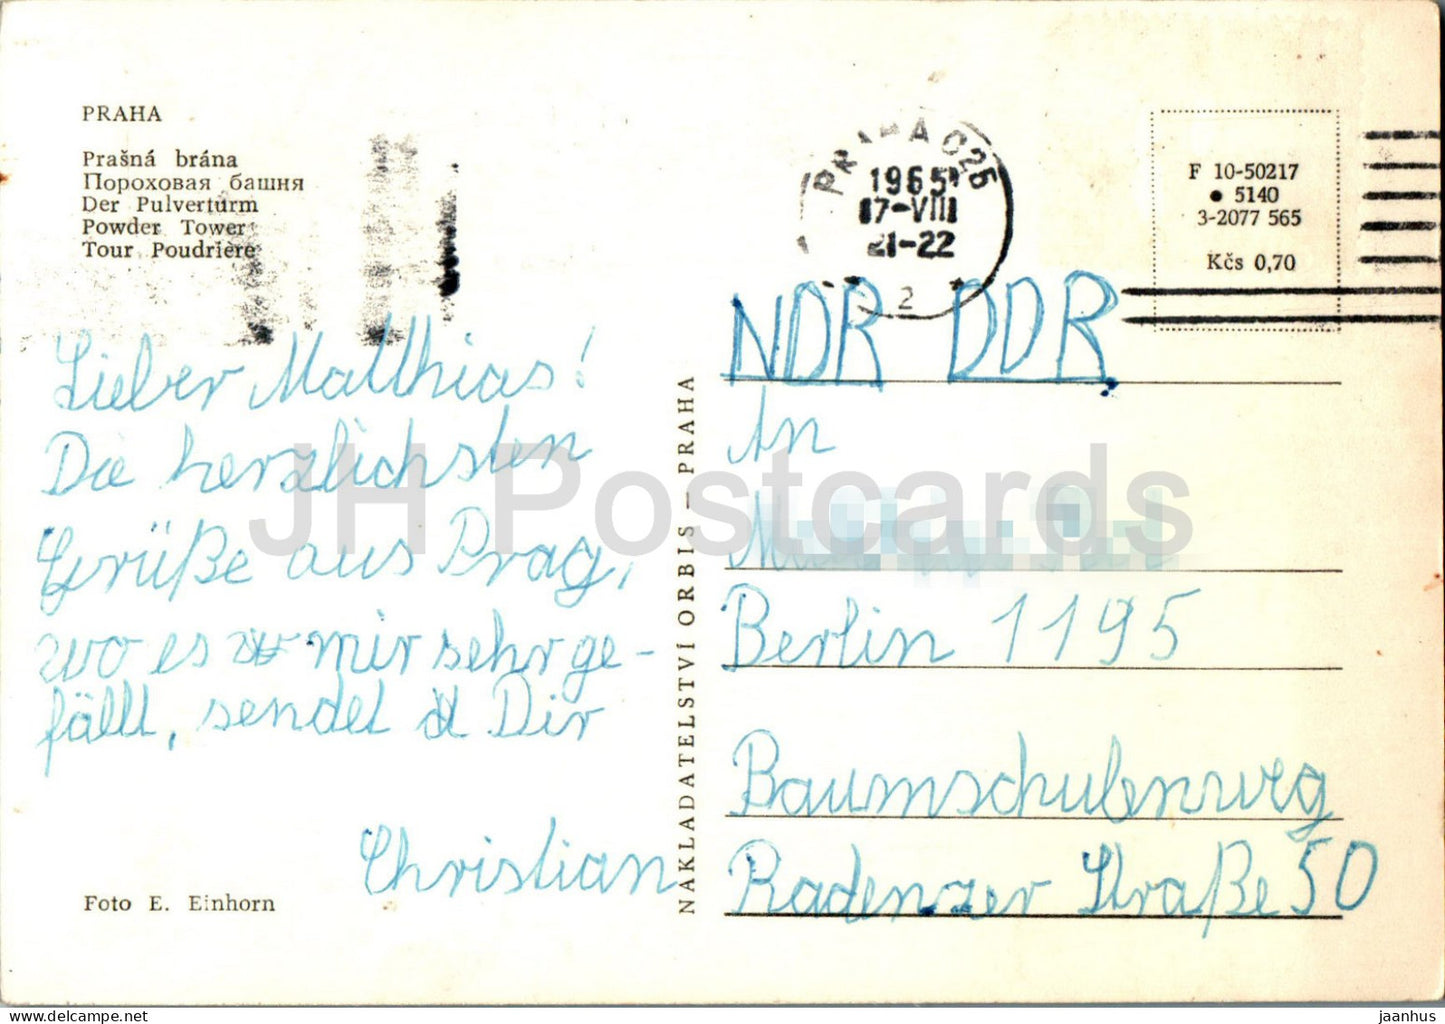 PRAHA
Prašná brána
Пороховая башня
Der Pulverturm
Powder Tower
Tour Poudrière
Lieber Matthias!
Die herzlichsten
Grüße aus Prag,
wo es mir sehr ge-
fällt, sendet Dir
Christian
Foto E. Einhorn
NAKLADATELSTVÍ ORBIS – PRAHA
PRAHA 025
1965
17-VII
21-22
2
F 10-50217
● 5140
3-2077 565
Kčs 0,70
NDR DDR
An
Berlin 1195
Baumschulenweg
Radenzer Straße 50
JH Postcards
jaanhus